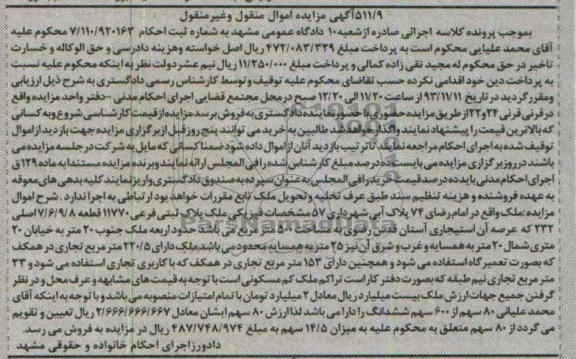 ۵۱۱/۹آگهی مزایده اموال منقول وغیرمنقول
بموجب پرونده کلاسه اجرائی صادره ازشعبه۱۰ دادگاه عمومی مشهد به شماره ثبت احکام ۷/۱۱۰/۹۲۰۱۶۳ محکوم علیه
آقای محمد علیایی محکوم است به پرداخت مبلغ ۴۷۲/۰۸۳/۳۲۹ ریال اصل خواسته وهزینه دادرسی و حق الوکاله و خسارت
تاخیر در حق محکوم له مجید تقی زاده کمالی و پرداخت مبلغ ۱۱/۲۵۰/۰۰۰ ریال نیم عشر دولت نظر به اینکه محکوم علیه نسبت
به پرداخت دین خود اقدامی نکرده حسب تقاضای محکوم علیه توقیف و توسط کارشناس رسمی دادگستری به شرح ذیل ارزیابی
ومقررگردید در تاریخ ۹۳/۱۱/۱۱ از ساعت ۱۱/۲۰ الی ۱۲/۲۰ صبح درمحل مجتمع قضایی اجرای احکام مدنی -دفتر واحد مزایده واقع
در قرنی قرنی ۲۴و۲۲از طریق مزایده حضوری باحضورنماینده دادگستری به فروش برسد مزایده ازقیمت کارشناسی شروع وبه کسانی
که بالاترین قیمت را پیشنهاد نمایند واگذارمیشود طالبین به خرید می توانند پنج روزقبل ازبرگزاری مزایده جهت بازدید ازاموال
توقیف شده به اجرای احکام مراجعه نمایند تاترتیب بازدید آنان ازاموال داده شود ضمنا کسانی که مایل به شرکت در جلسه مزایده می
باشند درروزبرگزاری مزایده می بایست ده درصد مبلغ کارشناس شده رافی المجلس ارائه نمایند وبرنده مزایده مستندا به ماده ۱۲۹ ق
اجرای احکام مدنی بایدده درصد قیمت خرید رافی المجلس به عنوان سپرده به صندوق دادگستری واریزنمایند کلیه بدهی های معوقه
به عهده فروشنده و هزینه تنظیم سند طبق عرف تخلیه وتحویل ملک تابع مقررات خواهد بود ارتباطی به اجرا ندارد . شرح اموال
مزایده:ملک واقع در امام رضای ۷۴ پلاک آبی شهرداری ۵۷ مشخصات فیزیکی ملک پلاک ثبتی فرعی ۱۱۷۷۰ قطعه ۷/۶/۹/۸ اصلی
۲۳۲ که عرصه آن استیجاری آستان قدس رضوی به مساحت ۵۰۰ متر مربع می باشد حدود اربعه ملک جنوب ۲۰ متر به خیابان ۲۰
متری شمال ۲۰ متر به همسایه و غرب و شرق آن نیز ۲۵ متر به همسایه محدود می باشد ملک دارای ۲۲۰/۵ متر مربع تجاری در همکف
که بصورت تعمیر گاه استفاده می شود و همچنین دارای ۱۵۳ متر مربع تجاری در همکف که با کاربری تجاری استفاده می شود و ۳۳
متر مربع تجاری نیم طبقه که بصورت دفتر کار است تراکم ملک کم مسکونی است با توجه به قیمت های مشابهه و عرف محل و در نظر
گرفتن جمیع جهات ارزش ملک بیست میلیارد ریال معادل ۲ میلیارد تومان با تمام امتیازات منصوبه می باشد و با توجه به اینکه آقای
محمد علیائی ۸۰ سهم از ۶۰۰ سهم ششدانگ را دارا می باشد لذا ارزش ۸۰ سهم ایشان معادل ۲/۶۶۶/۶۶۶/۶۶۷ ریال تعیین و تقویم
می گردد از ۸۰ سهم متعلق به محکوم علیه به میزان ۱۴/۵ سهم به مبلغ ۴۸۷/۷۴۸/۹۷۴ ریال در مزایده به فروش می رسد.
دادورزاجرای احکام خانواده و حقوقی مشهد